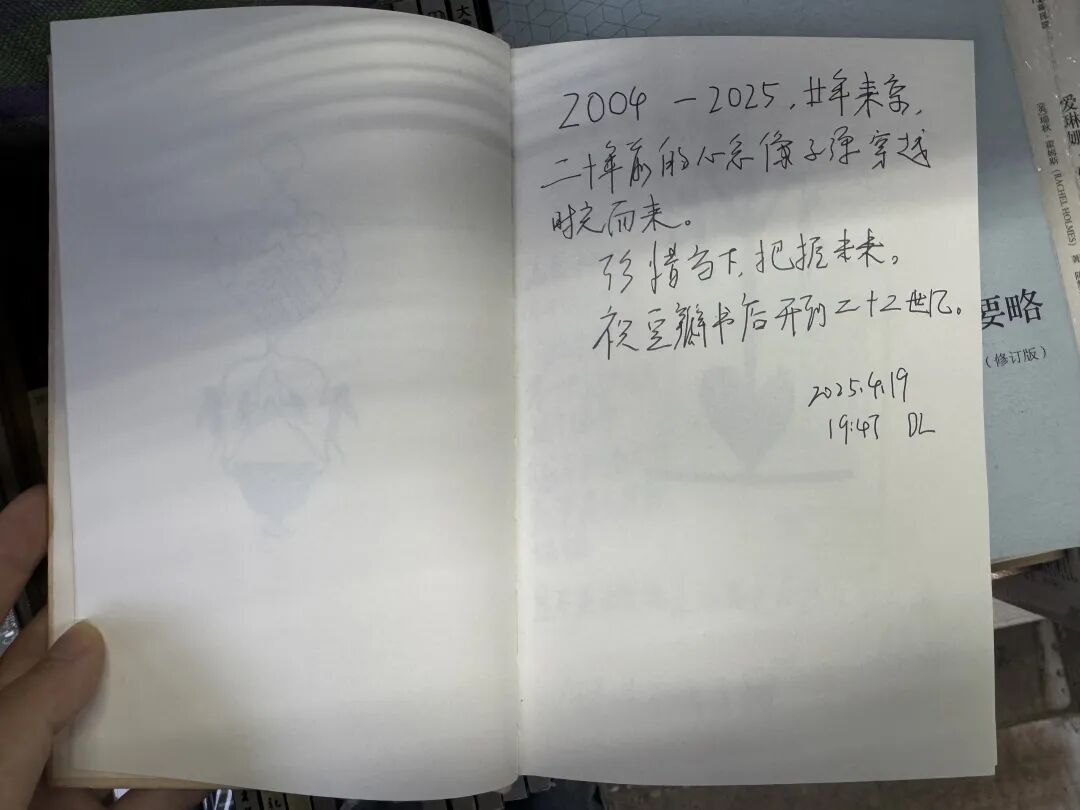 2004 — 2025，廿年来京，
二十年前的心念像子弹穿越
时光而来。
珍惜当下，把握未来。
祝豆瓣书店开到二十二世纪。
2025.4.19
19:47 DL
要略
（修订版）
爱琳娜
［英］瑞秋·霍姆斯（RACHEL HOLMES）著